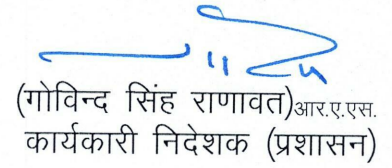 (गोविन्द सिंह राणावत)आर.ए.एस.
कार्यकारी निदेशक (प्रशासन)